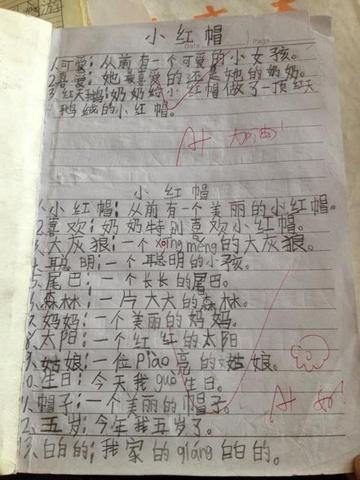 小红帽
1.可爱:从前有一个可爱的小女孩。
2.喜爱:她最喜爱的还是她的奶奶。
3.红天鹅:奶奶给小红帽做了一顶红天
鹅绒的小红帽。
A+ 加油!
小红帽
1.小红帽:从前有一个美丽的小红帽。
2.喜欢:奶奶特别喜欢小红帽。
3.大灰狼:一个xiōng měng的大灰狼。
4.聪明:一个聪明的小孩。
5.尾巴:一个长长的尾巴。
6.森林:一片大大的森林。
7.妈妈:一个美丽的妈妈。
8.太阳:一个红红的太阳
9.姑娘:一位piào亮的姑娘。
10.生日:今天我guò生日。
11.帽子:一个美丽的帽子。
A+
12.五岁:今年我五岁了。
13.白白的:我家的qiáng白白的。